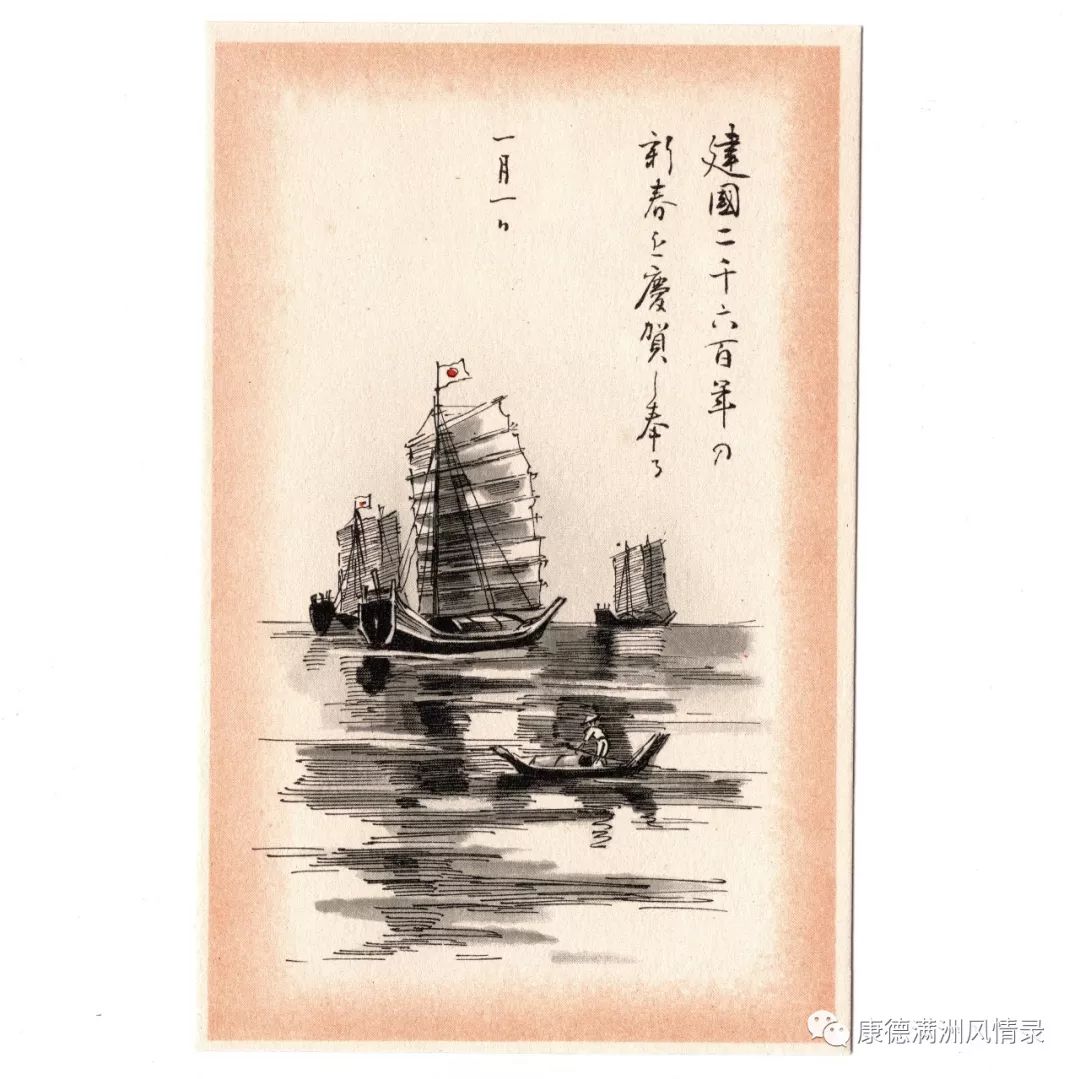 建國二千六百年の
新春を慶賀し奉る
一月一日
康德满洲风情录